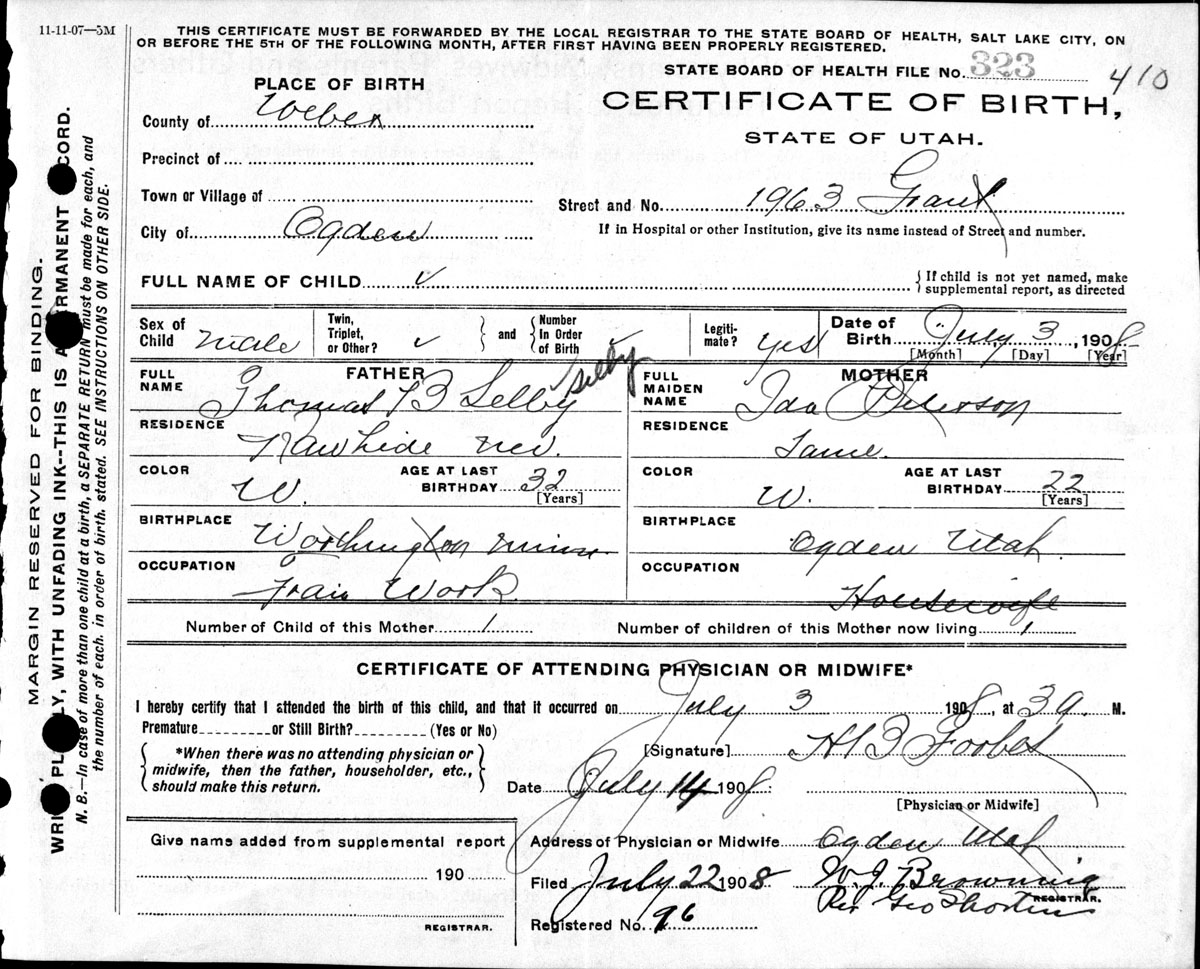 11-11-07—5M
THIS CERTIFICATE MUST BE FORWARDED BY THE LOCAL REGISTRAR TO THE STATE BOARD OF HEALTH, SALT LAKE CITY, ON
OR BEFORE THE 5TH OF THE FOLLOWING MONTH, AFTER FIRST HAVING BEEN PROPERLY REGISTERED.
STATE BOARD OF HEALTH FILE No. 323 410
CERTIFICATE OF BIRTH,
STATE OF UTAH.
PLACE OF BIRTH
County of Weber
Precinct of
Town or Village of
City of Ogden
Street and No. 1963 Grant
If in Hospital or other Institution, give its name instead of Street and number.
FULL NAME OF CHILD ✓
{ If child is not yet named, make
supplemental report, as directed
Sex of
Child Male
Twin,
Triplet,
or Other? ✓
} and {
Number
In Order
of Birth ✓
Legiti-
mate? yes
Date of
Birth July 3, 1908
[Month] [Day] [Year]
FATHER
FULL
NAME Thomas B Selby Selby
RESIDENCE
Rawhide Nev.
COLOR
W.
AGE AT LAST
BIRTHDAY 32
[Years]
BIRTHPLACE
Worthington Minn
OCCUPATION
Work
MOTHER
FULL
MAIDEN
NAME Ida Peterson
RESIDENCE
Same.
COLOR
W.
AGE AT LAST
BIRTHDAY 22
[Years]
BIRTHPLACE
Ogden Utah.
OCCUPATION
Housewife
Number of Child of this Mother 1
Number of children of this Mother now living 1
CERTIFICATE OF ATTENDING PHYSICIAN OR MIDWIFE*
I hereby certify that I attended the birth of this child, and that it occurred on July 3 1908, at 3 a. M.
Premature or Still Birth? (Yes or No)
{ *When there was no attending physician or
midwife, then the father, householder, etc.,
should make this return. }
[Signature] H B Forbes
Date July 14 1908.
[Physician or Midwife]
Give name added from supplemental report
190
REGISTRAR.
Address of Physician or Midwife Ogden Utah
Filed July 22 1908 W. J. Browning
REGISTRAR.
Per Geo Shorten
Registered No. 96
MARGIN RESERVED FOR BINDING.
PLY, WITH UNFADING INK--THIS IS A CORD.
N. B.—In case of more than one child at a birth, a SEPARATE RETURN must be made for each, and
the number of each, in order of birth, stated. SEE INSTRUCTIONS ON OTHER SIDE.